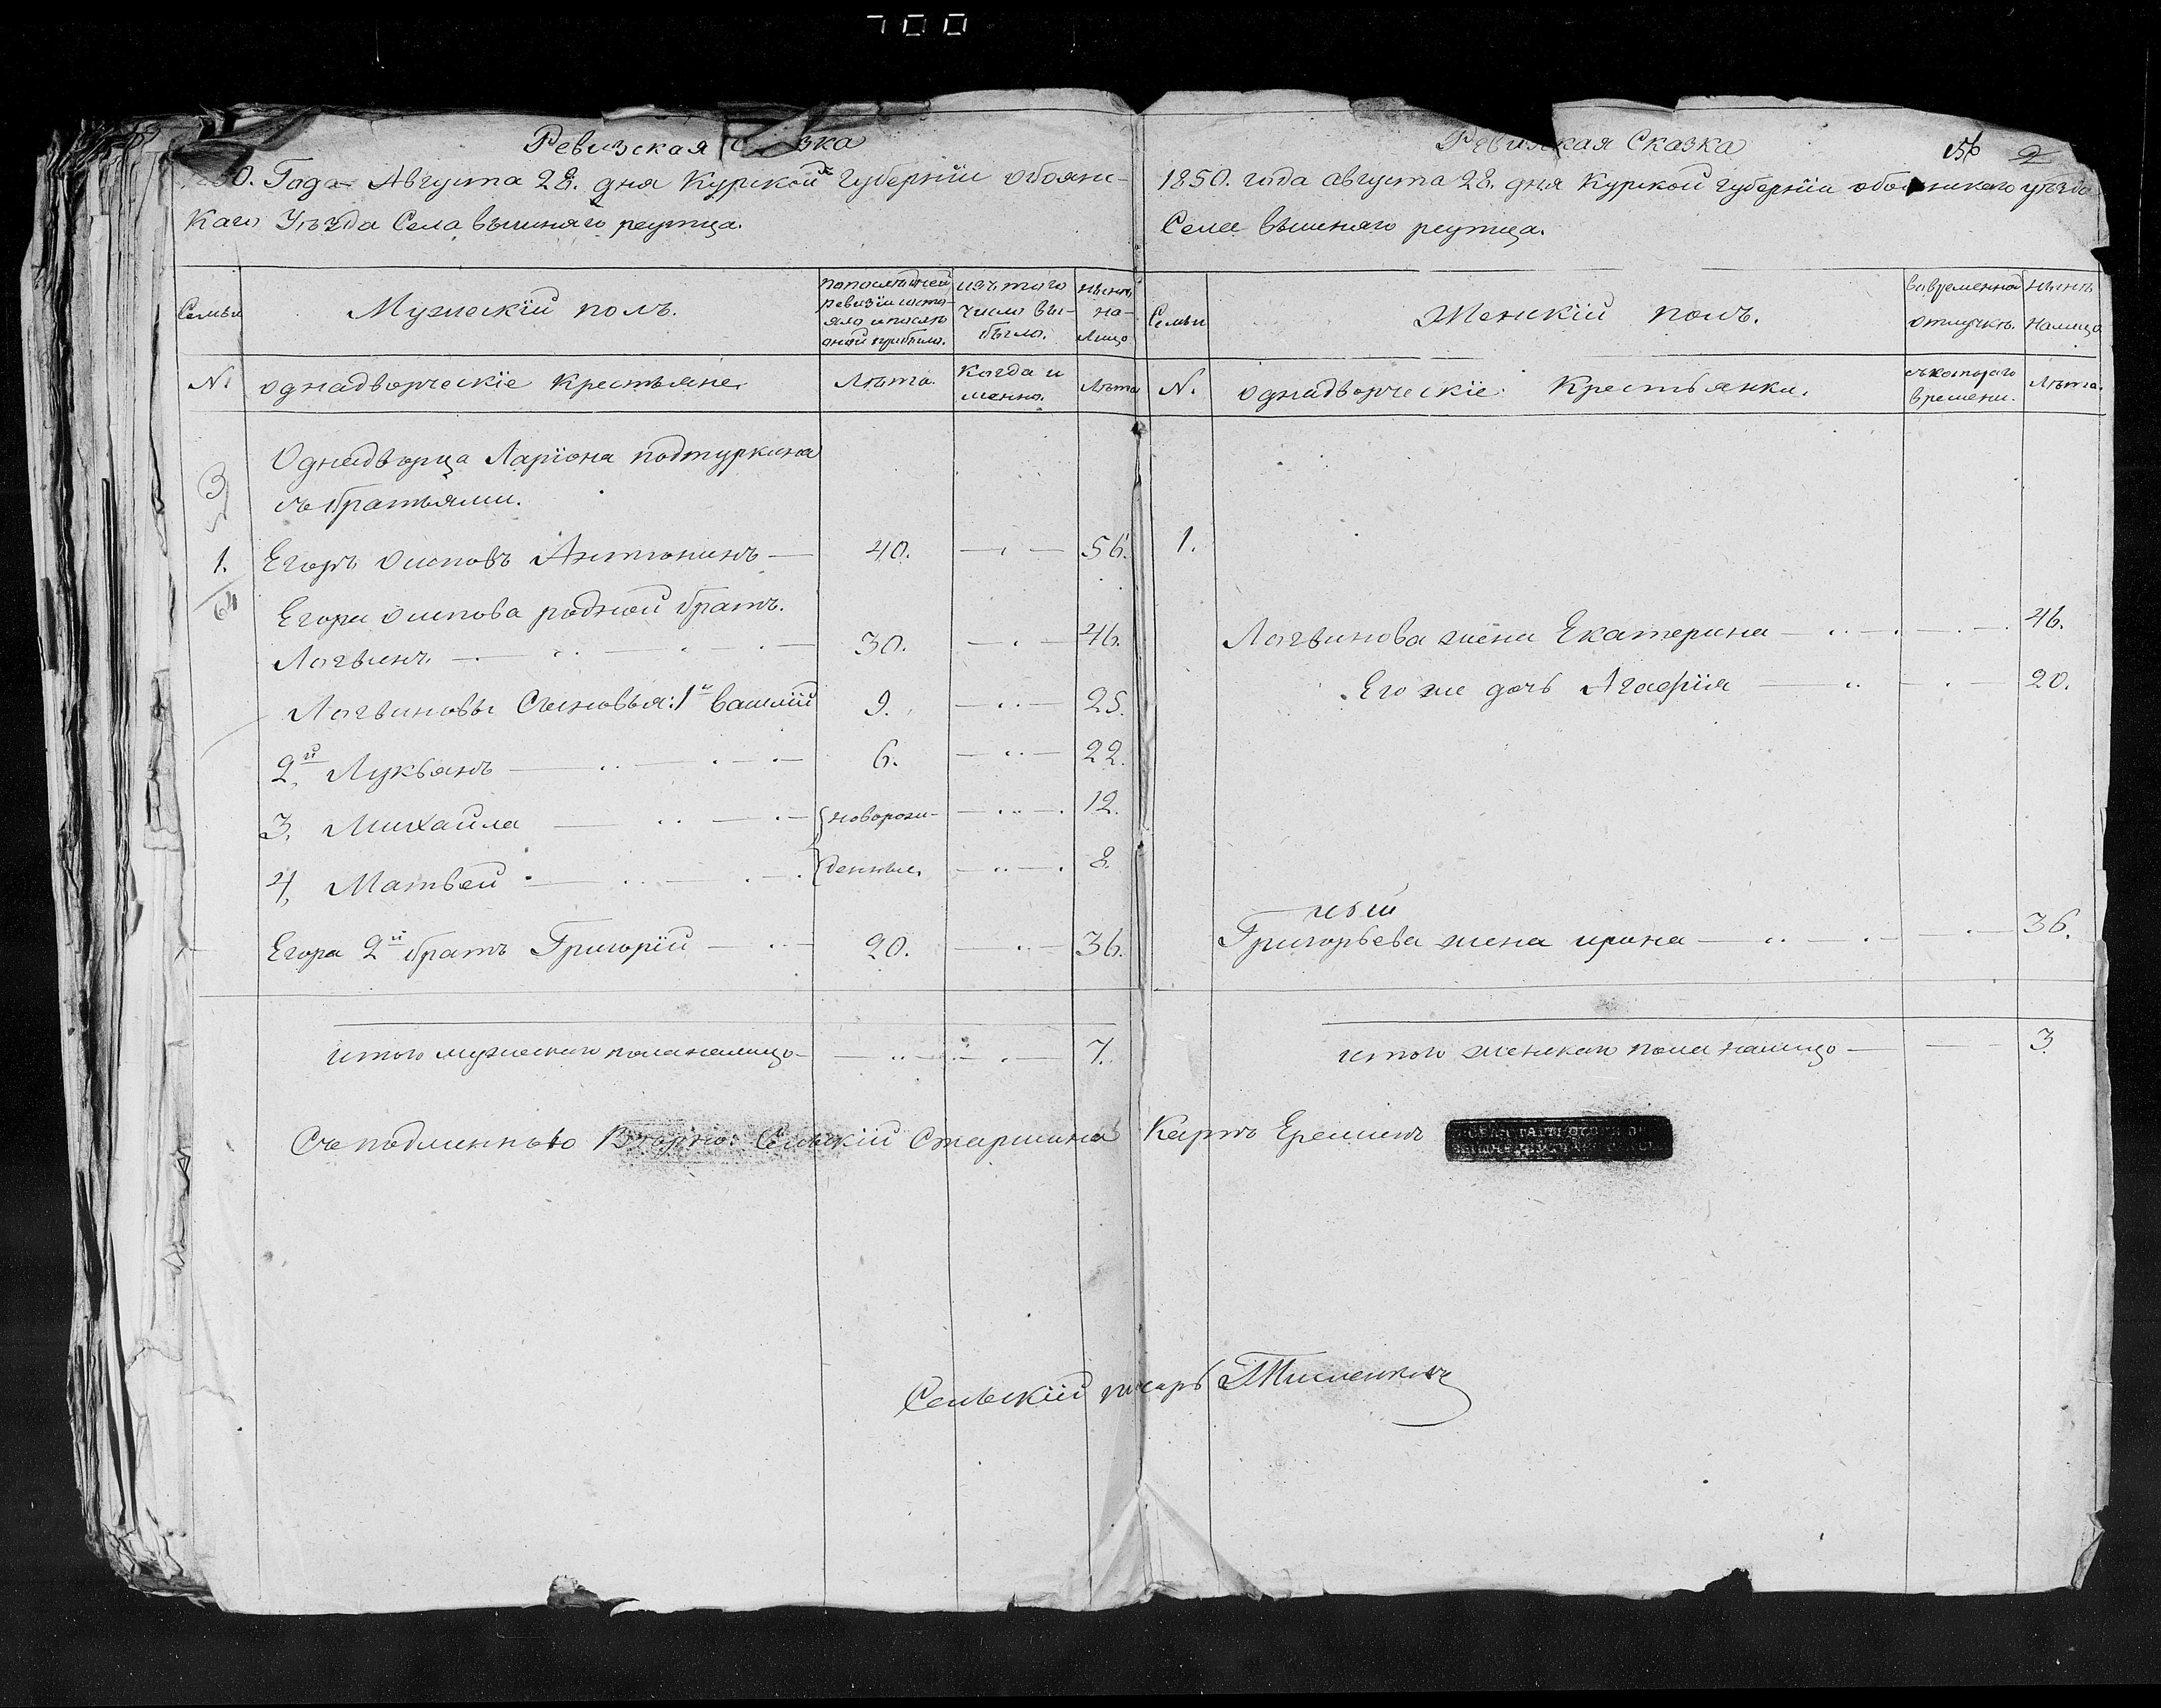 700
Ревизская Сказка
1850. Года Августа 28. дня Курской Губернiи обоянс-
Каго Уѣзда Села вышняго реутца.
Семьи
Мужескiй полъ.
по последней ревизiи состо-яло и после оной прибыло.
изъ того числа вы-было.
нынѣ на-лицо
№
однадворческiе крестьяне.
Лѣта.
Когда и менно.
Лѣта
Однадворца Ларiона подтуркина
съ братьями.
1. Егоръ Осиповъ Антонинъ 40. 56.
Егора осипова родной братъ.
Логвинъ. 30. 46.
Логвиновы Сыновья: 1й василiй 9. 25.
2й Лукьянъ 6. 22.
3. Михайла новорож- 12.
4, Матвей денные. 8.
Егора 2й братъ Григорiй 20. 36.
итого мужескаго пола налицо 7.
Съ подленнью Сельскiй Старшина
Ревизская Сказка
156 2
1850. года августа 28. дня Курской губернiи обоянскаго уѣзда
Села вышняго реутца.
Семьи
Женскiй полъ.
во временной отлучкѣ.
нынѣ налицо
№.
однадворческiе Крестьянки.
съ котораго времени.
Лѣта.
1.
Логвинова жена Екатерина 46.
Его же дочь Агафiя 20.
Григорьева жена ирина 36.
итого женскаго пола налицо 3.
Карпъ Ереминъ
Сельскiй писарь